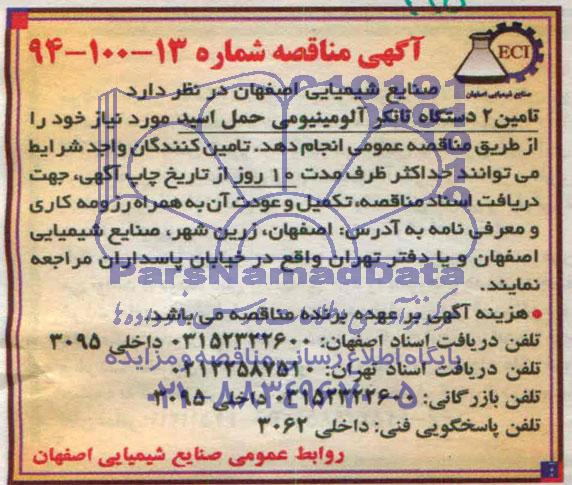 آگهی مناقصه شماره ۱۳-۱۰۰-۹۴
ECI
صنایع شیمیایی اصفهان
صنایع شیمیایی اصفهان در نظر دارد
تامین ۲ دستگاه تانکر آلومینیومی حمل اسید مورد نیاز خود را
از طریق مناقصه عمومی انجام دهد. تامین کنندگان واجد شرایط
می توانند حداکثر ظرف مدت ۱۰ روز از تاریخ چاپ آگهی، جهت
دریافت اسناد مناقصه، تکمیل و عودت آن به همراه رزومه کاری
و معرفی نامه به آدرس: اصفهان، زرین شهر، صنایع شیمیایی
اصفهان و یا دفتر تهران واقع در خیابان پاسداران مراجعه
نمایند.
ParsNamadData
• هزینه آگهی بر عهده برنده مناقصه می باشد.
تلفن دریافت اسناد اصفهان: ۰۳۱۵۲۲۲۲۶۰۰ داخلی ۳۰۹۵
پایگاه اطلاع رسانی مناقصه و مزایده
تلفن دریافت اسناد تهران: ۰۲۱۲۲۵۸۷۵۱۰
۰۲۱-۸۸۳۴۹۶۷۰-۵
تلفن بازرگانی: ۰۳۱۵۲۲۲۲۶۰۰ داخلی ۳۰۹۵
تلفن پاسخگویی فنی: داخلی ۳۰۶۲
روابط عمومی صنایع شیمیایی اصفهان